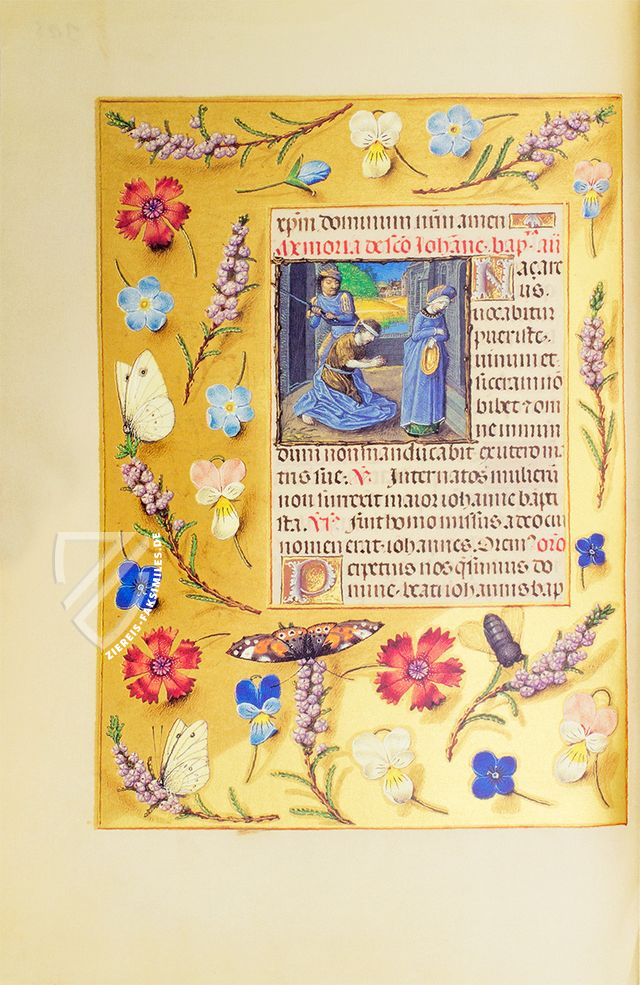 xp̄m dominum nr̄m amen
Memoria de sc̄o Iohāne . bap . añ
Naȝare
us .
uocabitur
puer iste .
uinum et
siceram no
bibet ⁊ om
ne immun
dum non manducabit ex utero m̄a
tris sue . V̄ . Inter natos mulierū
non surrexit maior iohanne bapti
sta . R̄ . fuit homo missus a deo cu
nomen erat . iohannes . Orem᷒ . oro
Perpetuis nos q̄sumus do
mine . beati iohannis bap
ZIEREIS-FAKSIMILES.DE